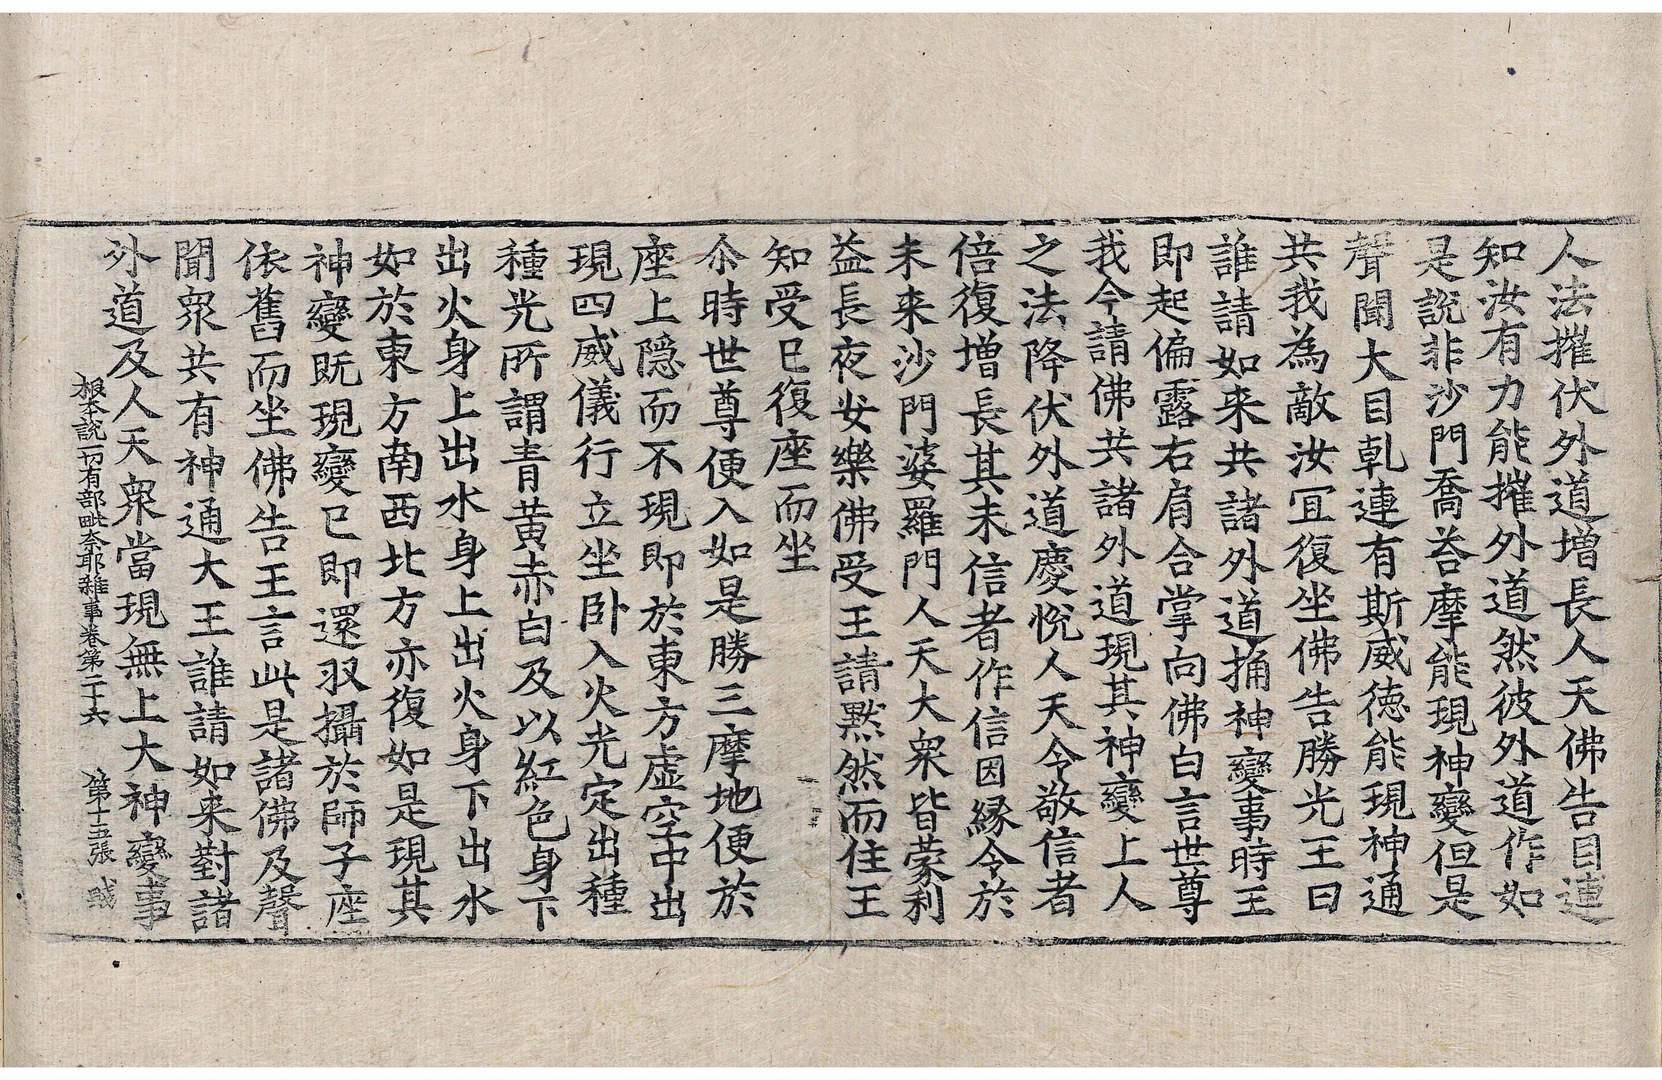 人法摧伏外道增長人天佛告目連
知汝有力能摧外道然彼外道作如
是說非沙門喬荅摩能現神變但是
聲聞大目乹連有斯威德能現神通
共我為敵汝冝復坐佛告勝光王曰
誰請如来共諸外道捔神變事時王
即起偏露右肩合掌向佛白言世尊
我今請佛共諸外道現其神變上人
之法降伏外道慶悅人天令敬信者
倍復增長其未信者作信因緣令於
未来沙門婆羅門人天大衆皆蒙利
益長夜安樂佛受王請默然而住王
知受已復座而坐
尒時世尊便入如是勝三摩地便於
座上隱而不現即於東方虛空中出
現四威儀行立坐卧入火光定出種
種光所謂青黃赤白及以紅色身下
出火身上出水身上出火身下出水
如於東方南西北方亦復如是現其
神變既現變已即還収攝於師子座
依舊而坐佛告王言此是諸佛及聲
聞衆共有神通大王誰請如来對諸
外道及人天衆當現無上大神變事
根本說一切有部毗奈耶雜事卷第二十六 第十五張